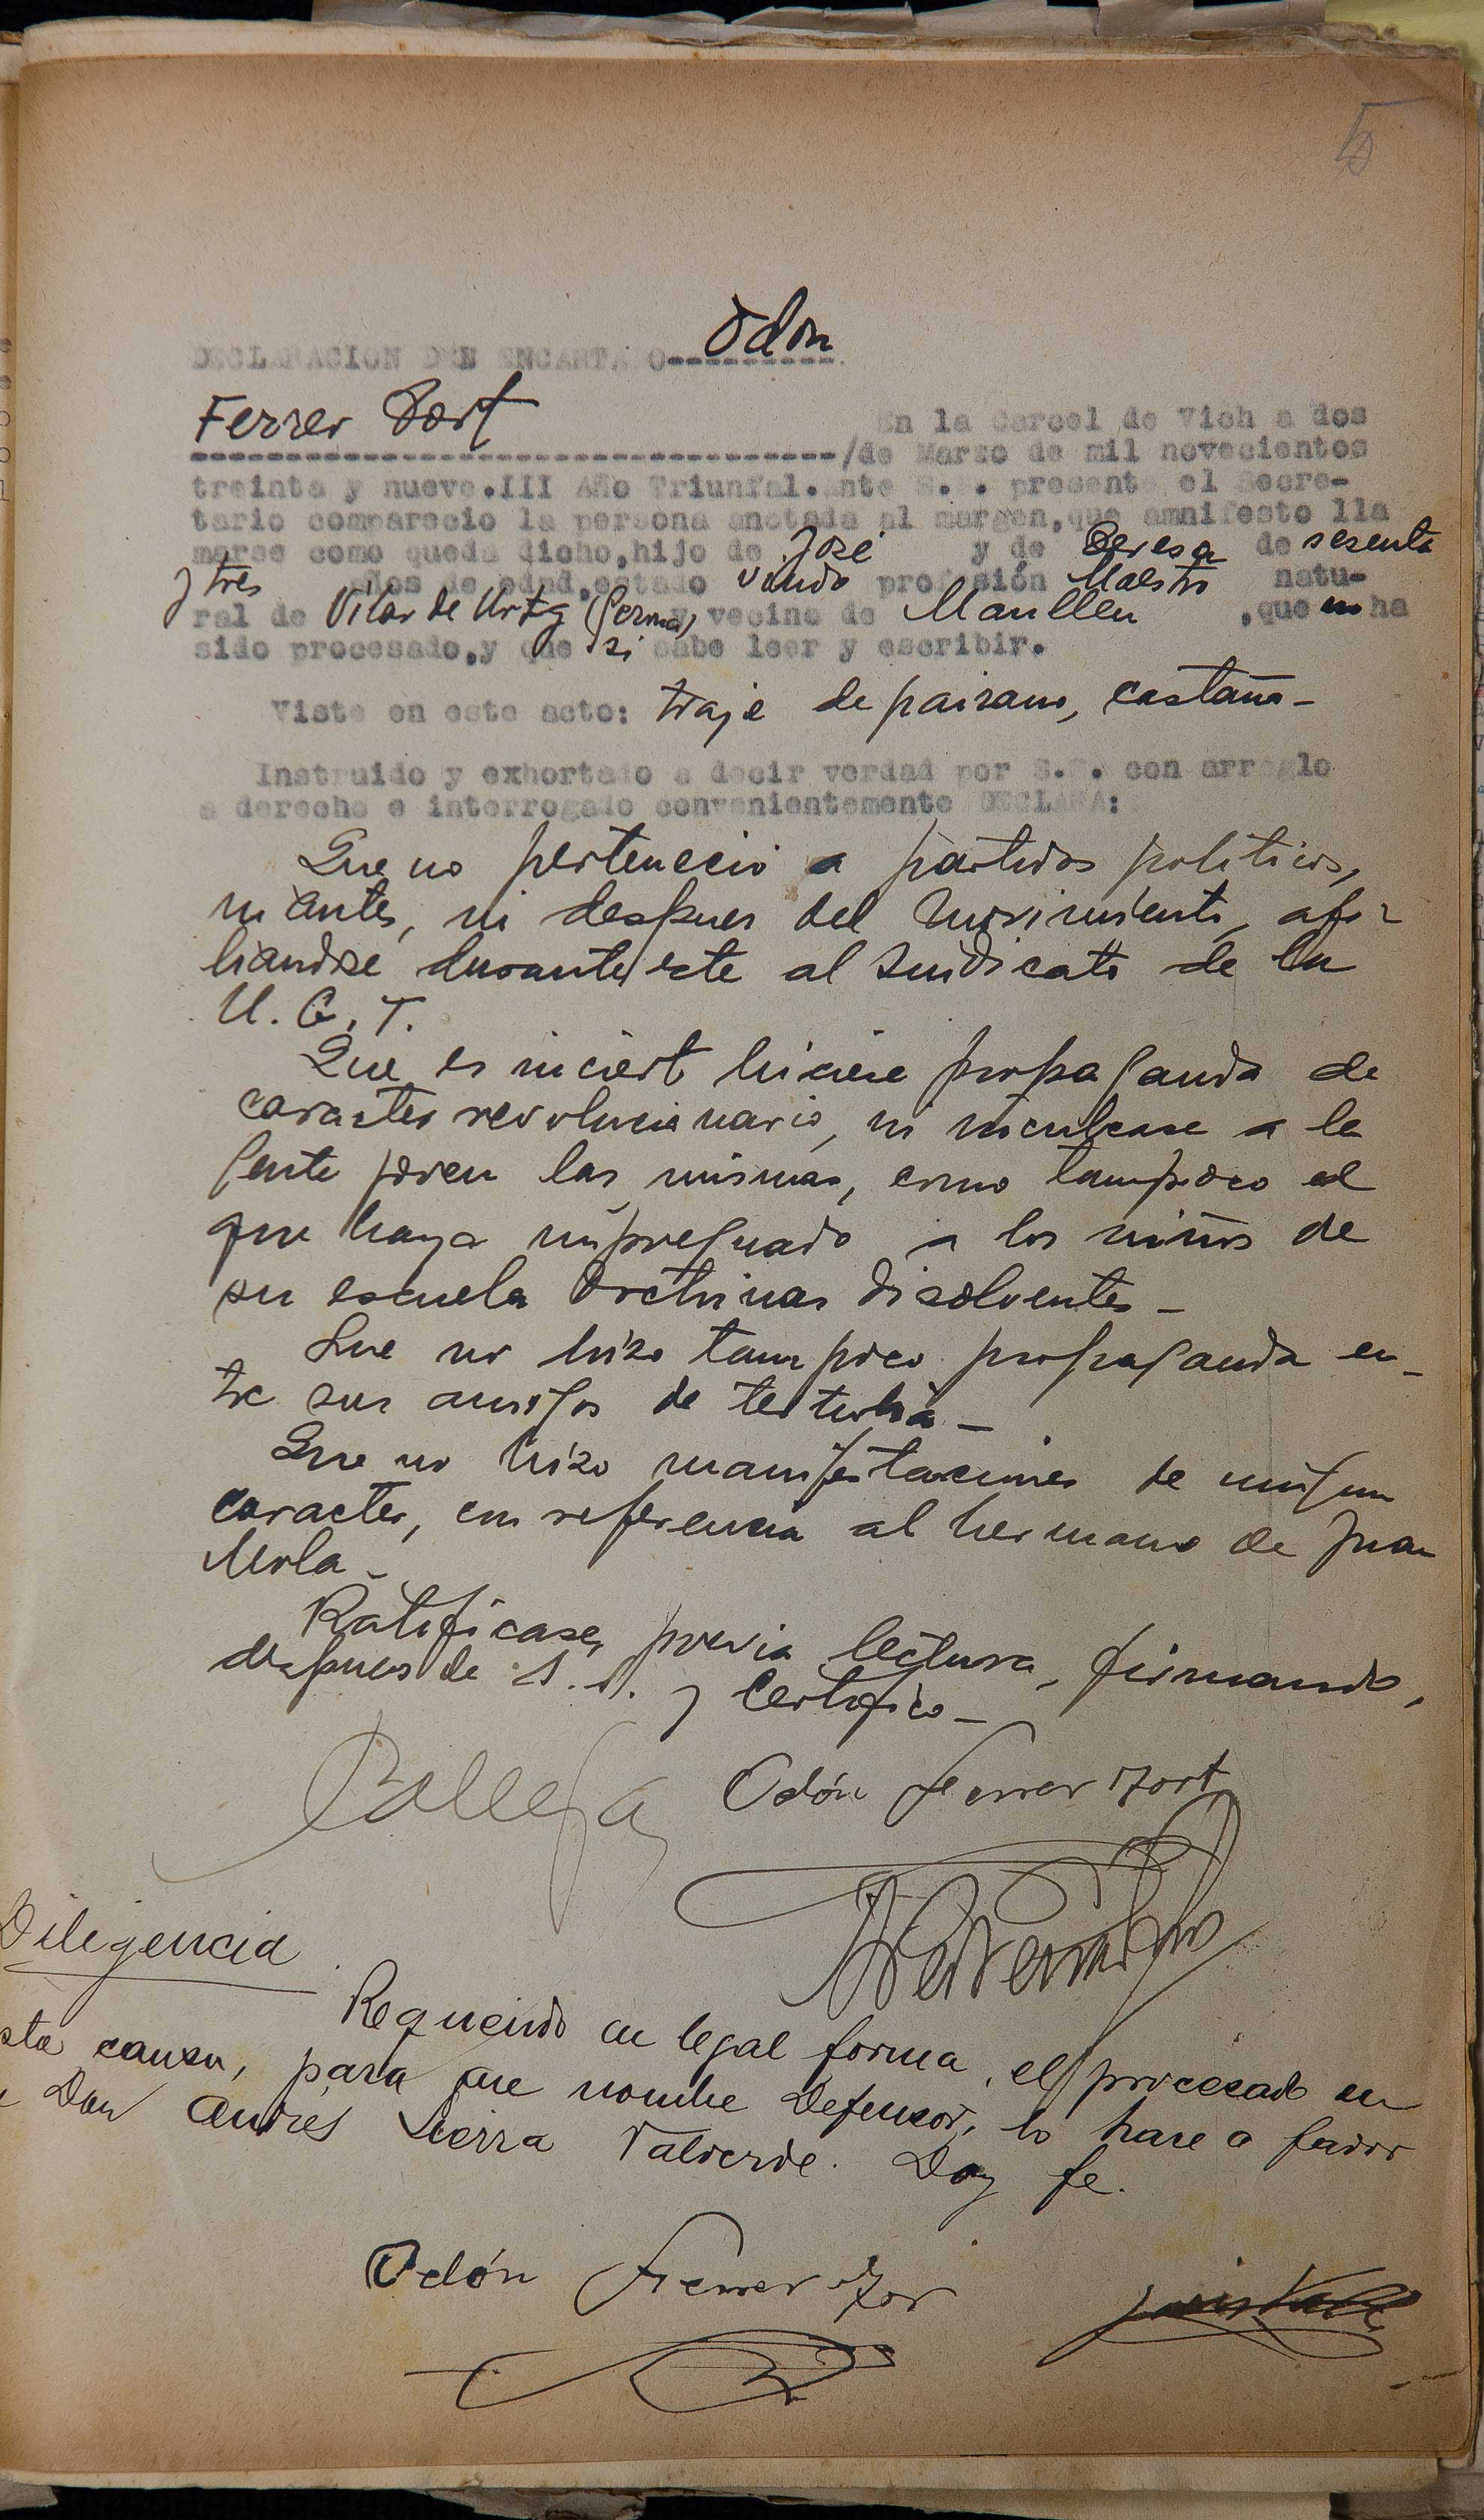 5
DECLARACION DEL ENCARTADO---------- Odon
Ferrer Fort En la Carcel de Vich a dos
--------------------------------/de Marzo de mil novecientos
treinta y nueve.III Año Triunfal.Ante S.S. presente el Secre-
tario comparecio la persona anotada al margen,que amnifesto lla
marse como queda dicho,hijo de José y de Teresa de sesenta
y tres años de edad,estado viudo profesión Maestro natu-
ral de Vilar de Urtg (Gerona) y vecino de Manlleu ,que no ha
sido procesado,y que si sabe leer y escribir.
Viste en este acto: traje de paisano, castaño-
Instruido y exhortado a decir verdad por S.S. con arreglo
a derecho e interrogado convenientemente DECLARA:
Que no pertenecio a partidos politicos,
ni antes, ni despues del movimiento, afi-
liandose durante este al Sindicato de la
U. G. T.
Que es incierto hiciese propaganda de
caracter revolucionario, ni inculcase a la
gente joven las mismas, como tampoco el
que haya impregnado a los niños de
su escuela doctrinas disolventes-
Que no hizo tampoco propaganda en-
tre sus amigos de tertulia-
Que no hizo manifestaciones de ningun
caracter, con referencia al hermano de Juan
Mola-
Ratificase, previa lectura, firmando,
despues de S. S. y Certifico-
Odón Ferrer Fort
Diligencia
Requerido en legal forma, el procesado en
sta causa, para que nombre Defensor, lo hace a favor
Don Andres Sierra Valverde. Doy fe.
Odón Ferrer For